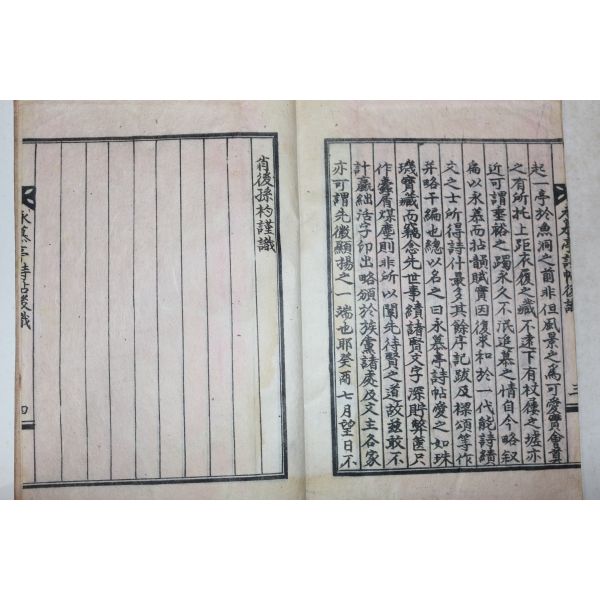 永慕亭詩帖後識
三
起一亭於魚洞之酋非但風景之爲可愛實會尊
之有所托上距衣履之藏不遠下有杖屨之墟亦
近可謂垂裕之躅永久不泯追慕之情自今略叙
扁以永慕而拈韻賦實因復求和於一代能詩績
文之士所得詩什最多其餘序記跋及樑頌等作
并略干編也總以名之曰永慕亭詩帖愛之如珠
璣寶藏而竊念先世事績諸賢文字深貯弊篋只
作蠹屑煤塵則非所以闡先待賢之道故玆敢不
計贏絀活字印出略頒於族黨諸處及文主各家
亦可謂先徽顯揚之一端也耶癸酉七月望日不
肖後孫杓謹識
永慕亭詩帖後識
四